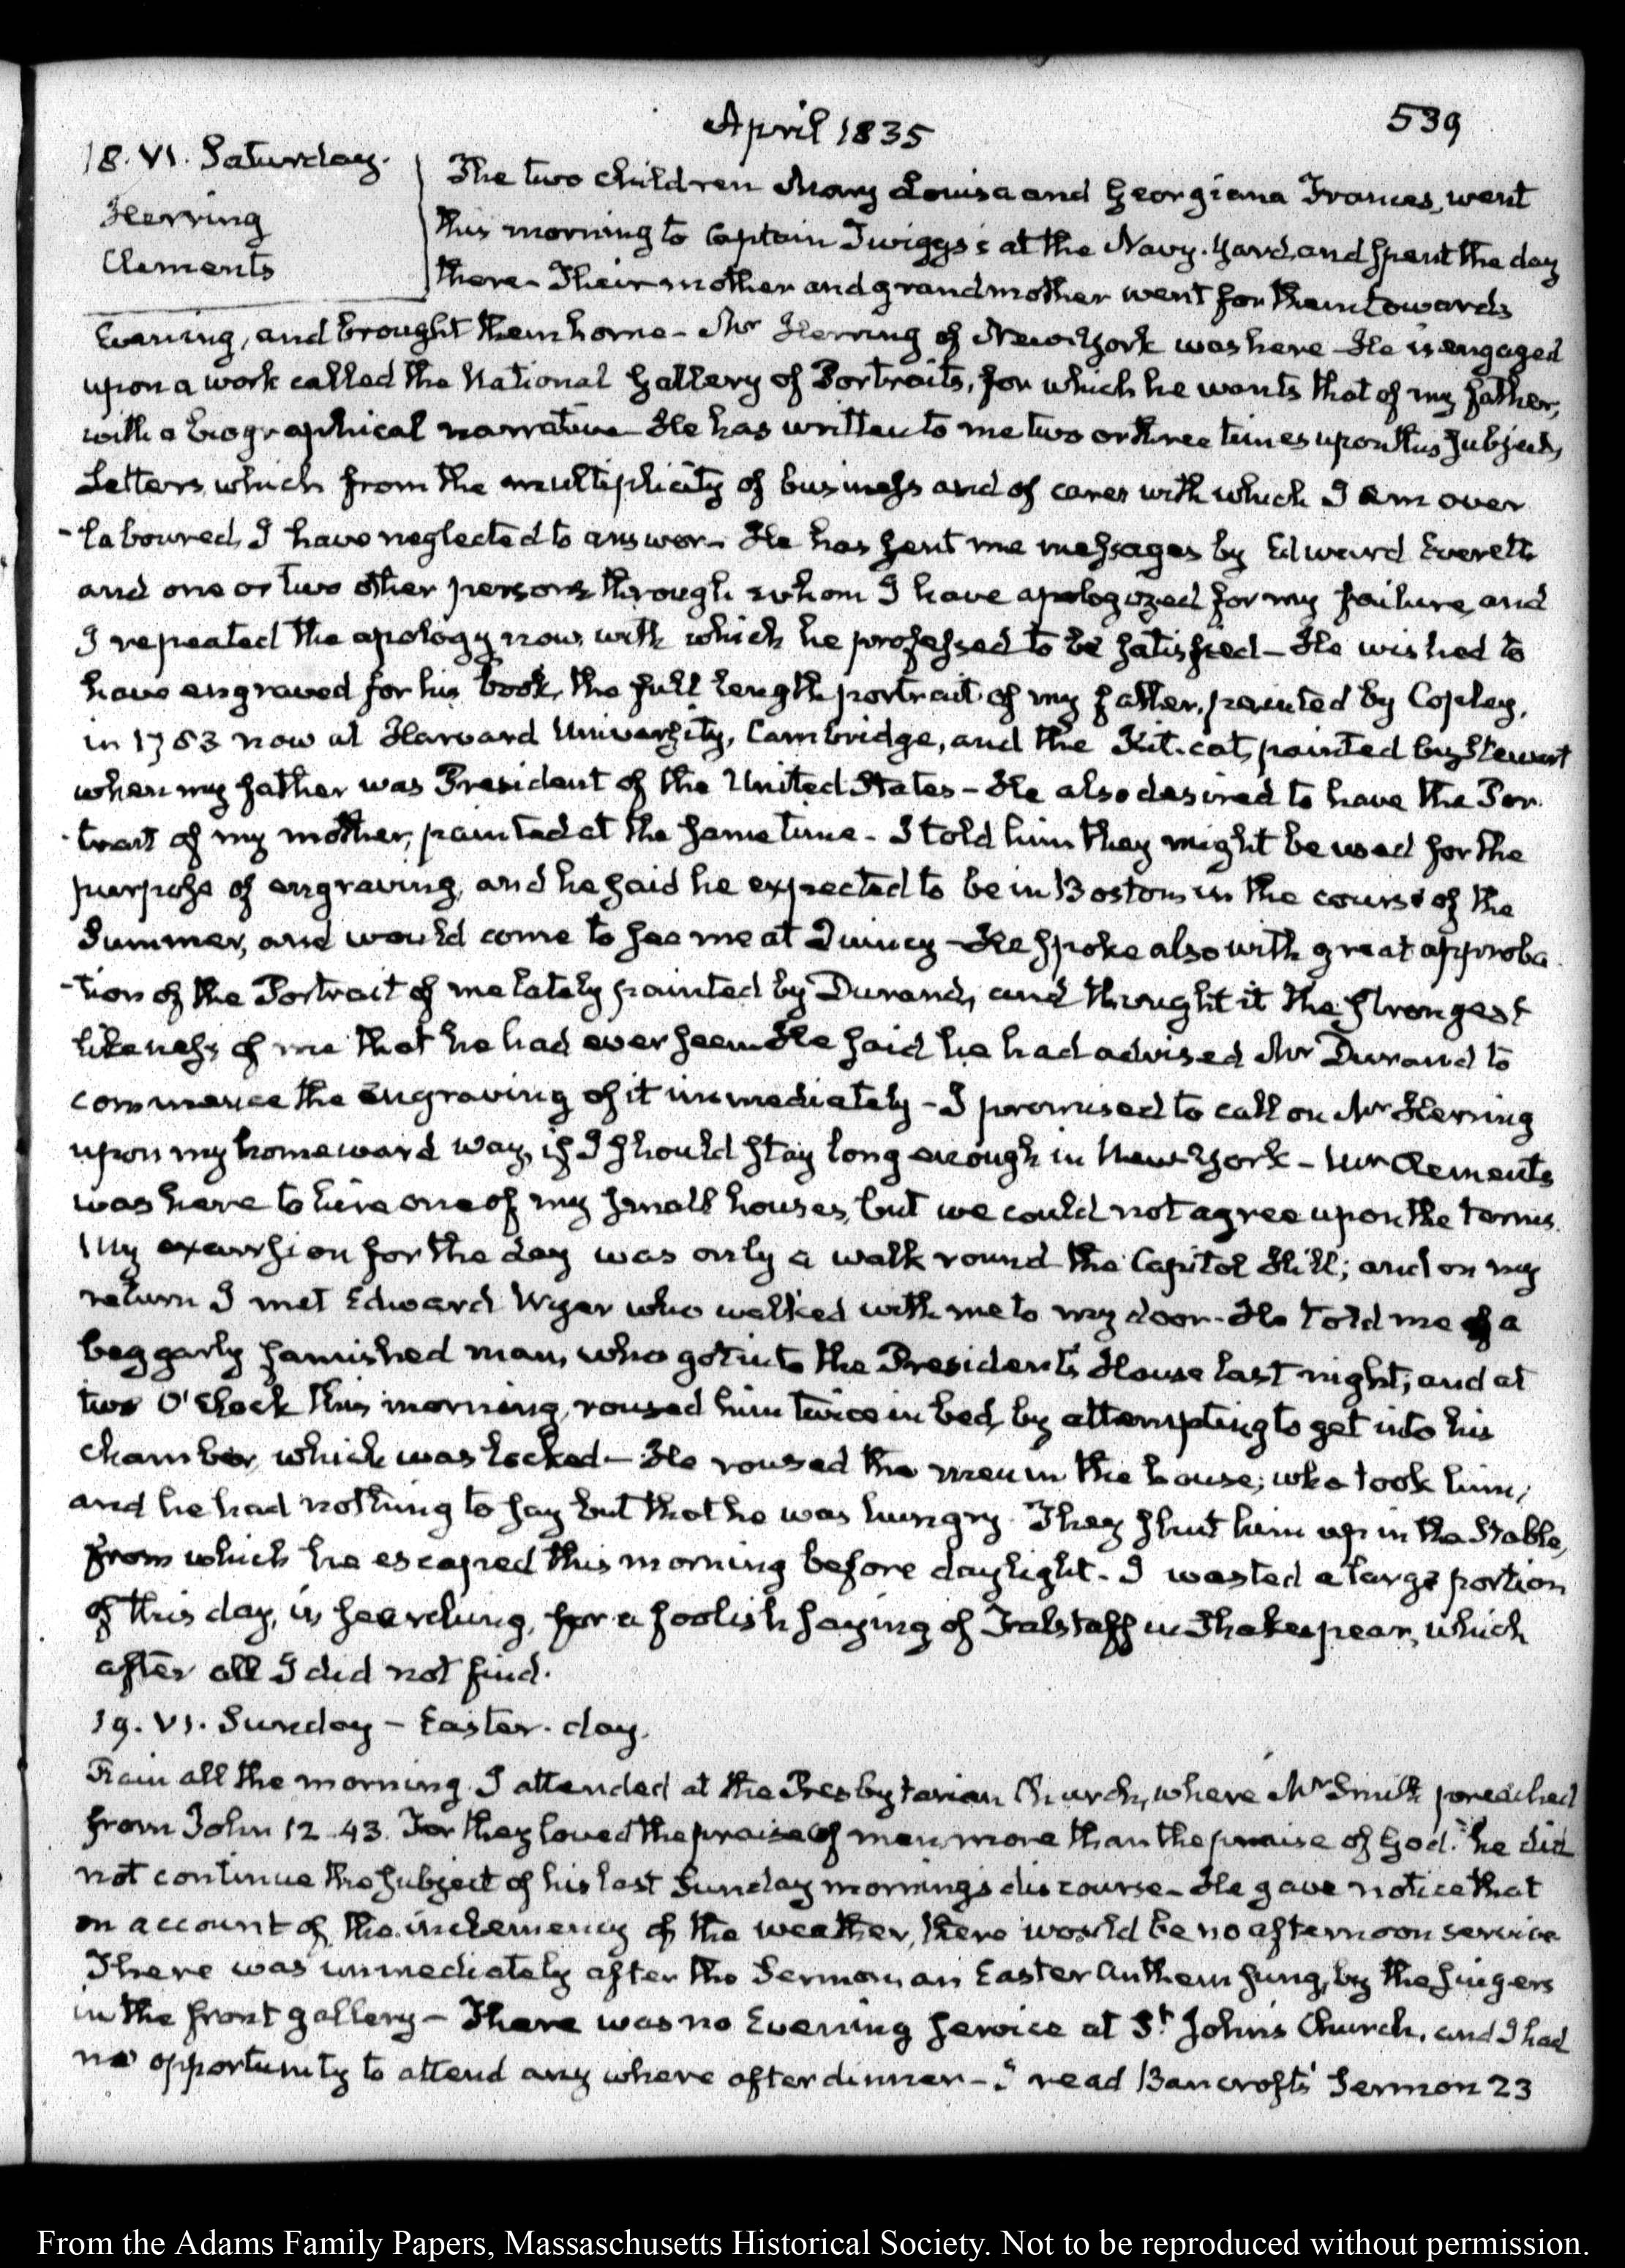 April 1835
539
18. VI. Saturday.
Herring
Clements
The two children Mary Louisa and Georgiana Frances, went
this morning to Captain Twiggs's at the Navy-Yard, and spent the day
there. Their mother and grandmother went for them towards
Evening, and brought them home - Mr Herring of New York was here - He is engaged
upon a work called the National Gallery of Portraits, for which he wants that of my father,
with a biographical narrative - He has written to me two or three times upon this subject,
Letters which from the multiplicity of business and of cares with which I am over
-laboured, I have neglected to answer - He has sent me messages by Edward Everett
and one or two other persons through whom I have apologized for my failure, and
I repeated the apology now, with which he professed to be satisfied - He wished to
have engraved for his book, the full length portrait of my father, painted by Copley,
in 1783 now at Harvard University, Cambridge, and the Kit-cat, painted by Stewart
when my father was President of the United States - He also desired to have the Por
-trait of my mother, painted at the same time - I told him they might be used for the
purpose of engraving, and he said he expected to be in Boston in the course of the
Summer, and would come to see me at Quincy - He spoke also with great approba
-tion of the Portrait of me lately painted by Durand, and thought it the strongest
likeness of me that he had ever seen. He said he had advised Mr Durand to
commence the engraving of it immediately - I promised to call on Mr Herring
upon my homeward way, if I should stay long enough in New York - Mr Clements
was here to hire one of my small houses, but we could not agree upon the terms.
My excursion for the day was only a walk round the Capitol Hill; and on my
return I met Edward Wyer who walked with me to my door. He told me of a
beggarly famished man, who got into the President's House last night; and at
two O'Clock this morning, roused him twice in bed, by attempting to get into his
chamber, which was locked - He roused the men in the house; who took him;
and he had nothing to say but that he was hungry. They shut him up in the Stable,
from which he escaped this morning before daylight. I wasted a large portion
of this day, in searching, for a foolish saying of Falstaff in Shakespear, which
after all I did not find.
19. VI. Sunday - Easter-day.
Rain all the morning. I attended at the Presbyterian Church, where Mr Smith preached
from John 12. 43. For they loved the praise of men, more than the praise of God." he did
not continue the subject of his last Sunday morning's discourse - He gave notice that
on account of the inclemency of the weather, there would be no afternoon service
There was immediately after the Sermon, an Easter Anthem sung, by the singers
in the front gallery - There was no Evening service at St John's Church, and I had
no opportunity to attend any where after dinner - I read Bancroft's Sermon 23
From the Adams Family Papers, Massaschusetts Historical Society. Not to be reproduced without permission.